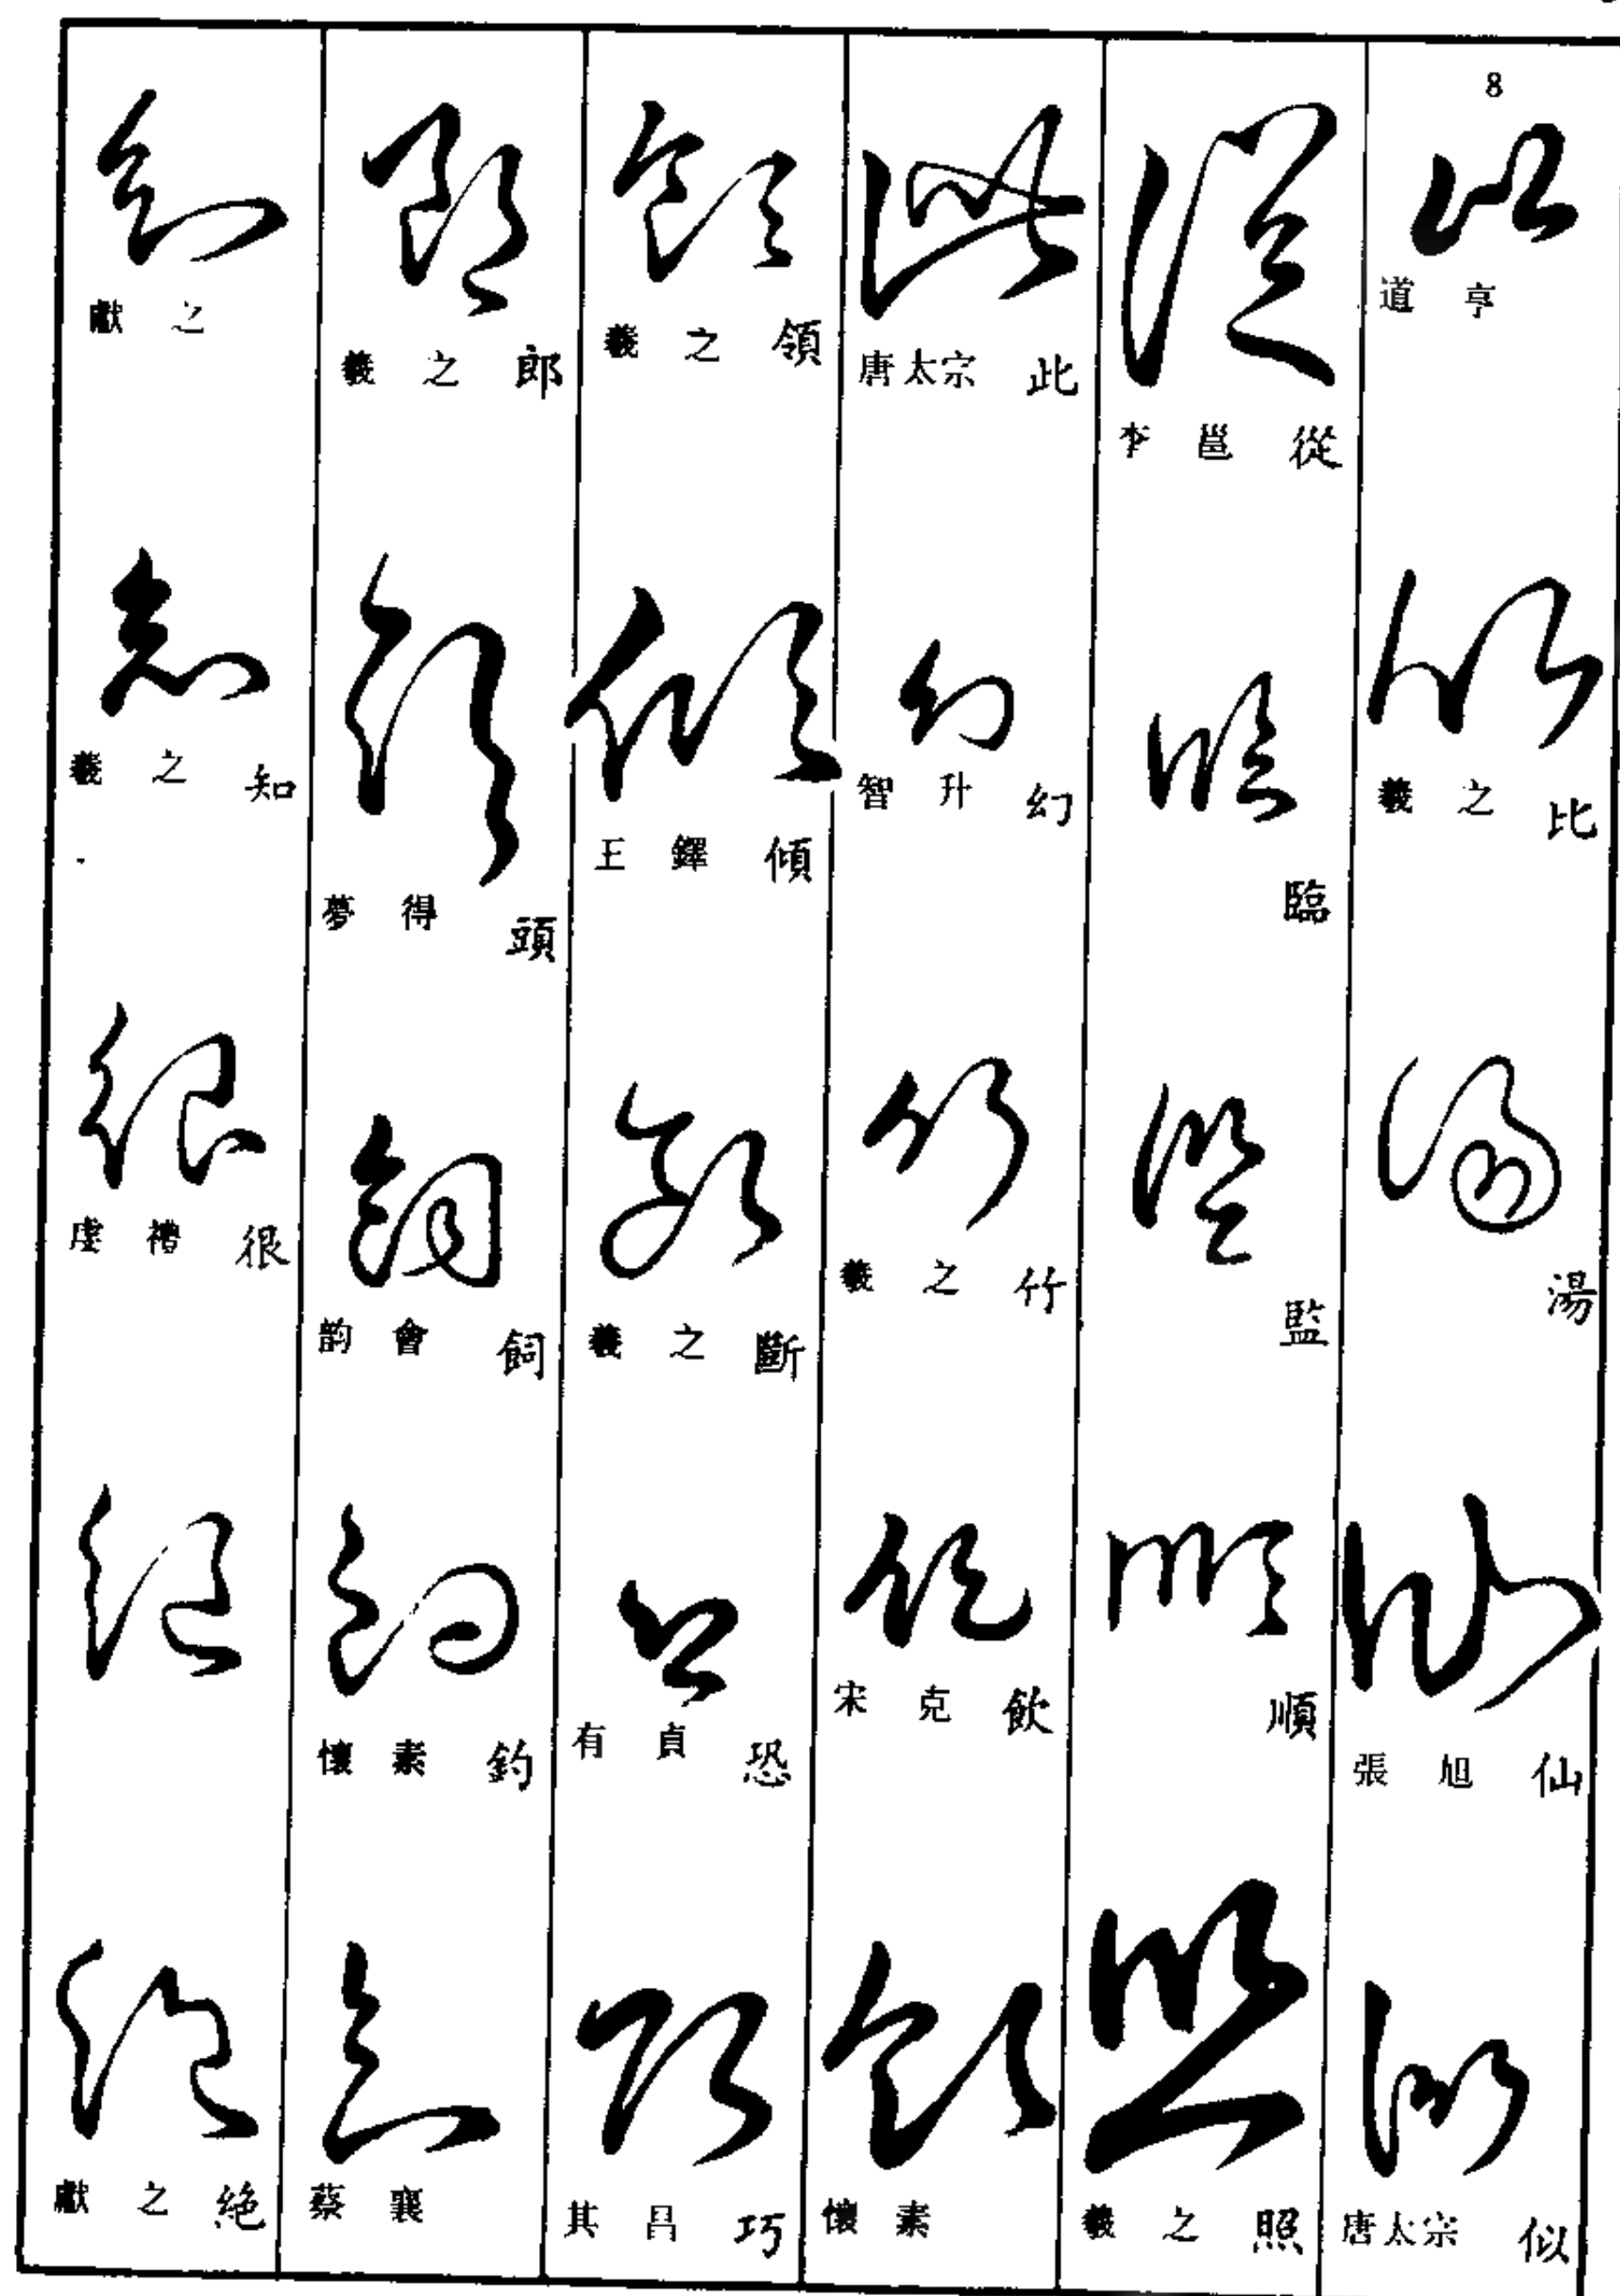 8
道亨
羲之 比
湯
張旭 仙
唐太宗 似
李邕 從
臨
監
順
羲之 照
唐太宗 此
智升 幻
羲之 竹
宋克 飲
懷素
羲之 領
王鐸 傾
羲之 斷
有貞 恐
其昌 巧
羲之 郎
夢得 頭
韵會 飼
懷素 釣
蔡襄
獻之
羲之 知
虔禮 很
獻之 绝